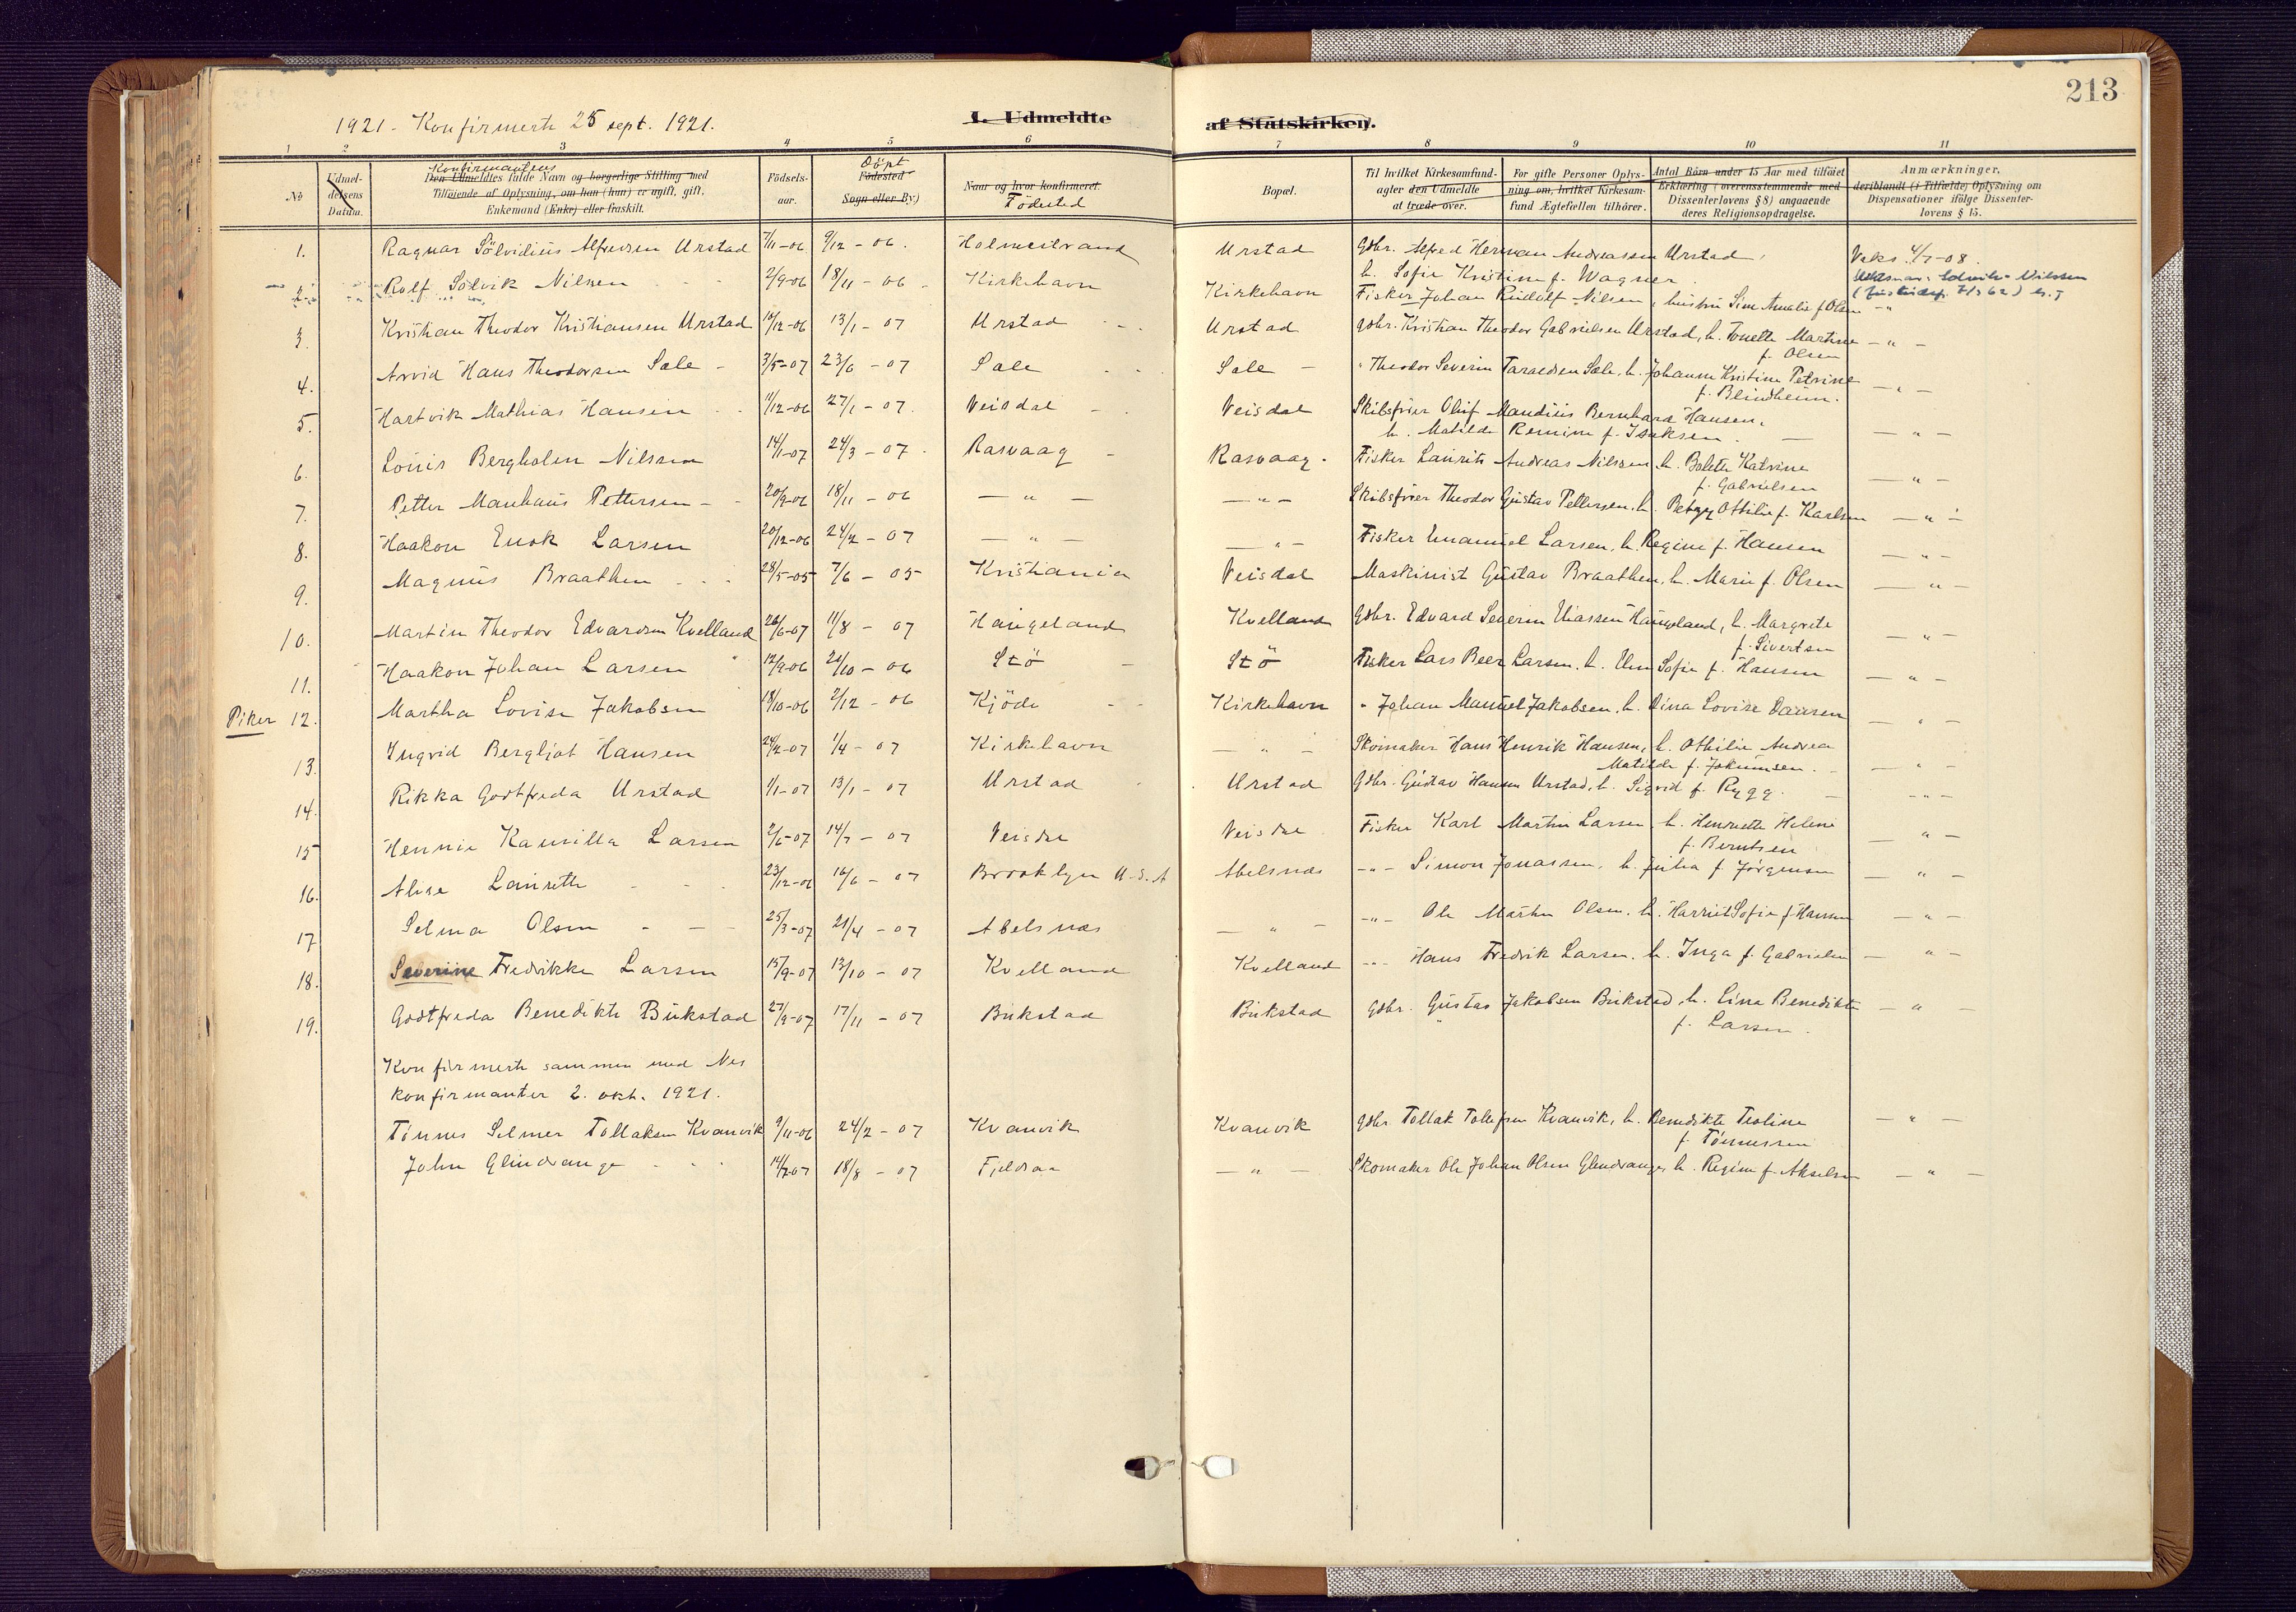 213
1921. Konfirmerte 25 sept. 1921. I. Udmeldte af Statskirken.
1 2 3 4 5 6 7 8 9 10 11
No Udmeldelsens Datum. Konfirmantens Den Udmeldtes fulde Navn og borgerlige Stilling med Tilføiende af Oplysning, om han (hun) er ugift, gift, Enkemand (Enke) eller fraskilt. Födsels-aar. Döpt Födested Sogn eller By) Naar og hvor konfirmeret. Födested Bopæl. Til hvilket Kirkesamfund agter den Udmeldte at træde over. For gifte Personer Oplysning om, hvilket Kirkesamfund Ægtefællen tilhörer. Antal Börn under 15 Aar med tilföiet Erklæring (overensstemmende med Dissenterlovens § 8) angaaende deres Religionsopdragelse. Anmærkninger, deriblandt (i Tilfælde) Oplysning om Dispensationer ifölge Dissenterlovens § 15.
1. Ragnar Sölvidius Alfredsen Urstad 7/11-06 9/12-06. Holmestrand Urstad Gbr. Alfred Herman Andreassen Urstad, Vaks. 4/7-08.
h. Sofie Kristine f. Wagner.
2. Rolf Sölvik Nilsen 2/9-06 18/11-06 Kirkehavn Kirkehavn Fisker Johan Rudolf Nilsen, hustru Sine Amalie f Olsen -"-
3. Kristian Theodor Kristiansen Urstad 10/12-06 13/1-07 Urstad Urstad Gbr. Kristian Theodor Gabrielsen Urstad, h. Tonette Martine -"-
f. Olsen
4. Arvid Hans Theodorsen Sale 3/5-07 23/6-07 Sale Sale " Theodor Severin Taraldsen Sale, h. Johanne Kristine Petrine -"-
f. Blindheim.
5. Hartvik Mathias Hansen 11/12-06 27/1-07. Veisdal Veisdal Skibsfører Oluf Maudius Bernhard Hansen,
h. Matilde Remine f. Isaksen. -"-
6. Louis Bergholm Nilssen 14/1-07 24/3-07. Rasvaag Rasvaag. Fisker Laurits Andreas Nilssen, h. Bolette Katrine
f. Gabrielsen -"-
7. Petter Manhaus Pettersen 20/9-06 18/11-06 -"- -"- Skibsfører Theodor Gustav Pettersen, h. Betzy Ottilie f. Karlsen -"-
8. Haakon Enok Larsen 20/12-06 24/2-07 -"- -"- Fisker Emanuel Larsen, h. Regine f. Hansen -"-
9. Magnus Braathen 28/5-05 7/6-05 Kristiania Veisdal Maskinist Gustav Braathen, h. Marie f. Olsen -"-
10. Martin Theodor Edvardsen Kvelland 26/6-07 11/8-07 Haugeland Kvelland Gbr. Edvard Severin Eliassen Haugeland, h. Margrete -"-
f. Sivertsen
11. Haakon Johan Larsen 12/9-06 21/10-06 Stö Stö Fisker Lars Beer Larsen, h. Sofie f. Hansen -"-
Piker 12. Martha Lovise Jakobsen 19/10-06 2/12-06 Kjöde Kirkehavn " Johan Manuel Jakobsen, h. Dina Lovise -"-
13. Ingrid Bergljot Hansen 24/2-07 1/4-07 Kirkehavn -"- Skomaker Hans Henrik Hansen, h. Othilie Andrea
Matilde f. Jokumsen. -"-
14. Rikka Godtfreda Urstad 1/1-07 13/1-07 Urstad Urstad Gbr. Gustav Hansen Urstad, h. Sigrid f. Rygg. -"-
15 Hennie Kamilla Larsen 2/6-07 14/7-07 Veisdal Veisdal Fisker Karl Martin Larsen, h. Henriette Helene
f. Berntsen -"-
16. Alise Laurette 23/12-06 16/6-07 Brooklyn U.S.A Abelsnes -"- Simon Jonassen, h. Julia f Jørgensen -"-
17 Selma Olsen 25/3-07 21/4-07 Abelsnes -"- -"- Ole Martin Olsen. h. Harriet Sofie f Hansen -"-
18. Severine Fredrikke Larsen 15/9-07 13/10-07 Kvelland Kvelland -"- Hans Fredrik Larsen. h. Inga f. Gabrielsen -"-
19. Godtfreda Benedikte Bukstad 27/9-07 17/11-07 Bukstad Bukstad Gbr. Gustav Jakobsen Bukstad, h. Lina Benedikte -"-
f. Larsen.
Konfirmerte sammen med Nes
konfirmanter 2. okt. 1921.
Tönnes Selmer Tollaksen Kvanvik 9/11-06 24/2-07 Kvanvik Kvanvik Gbr Tollak Tollefsen Kvanvik, h. Benedikte Teoline -"-
f. Tönnessen
John Glendrange 14/7-07 18/8-07 Fjeldsaa -"- Skomaker Ole Johan Olsen Glendrange, h. Regine f. Akselsen -"-